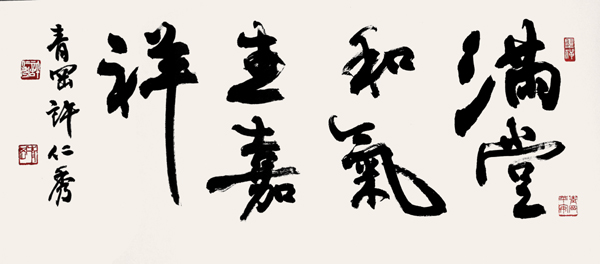 滿堂
和氣
生嘉
祥
青岡許仁秀